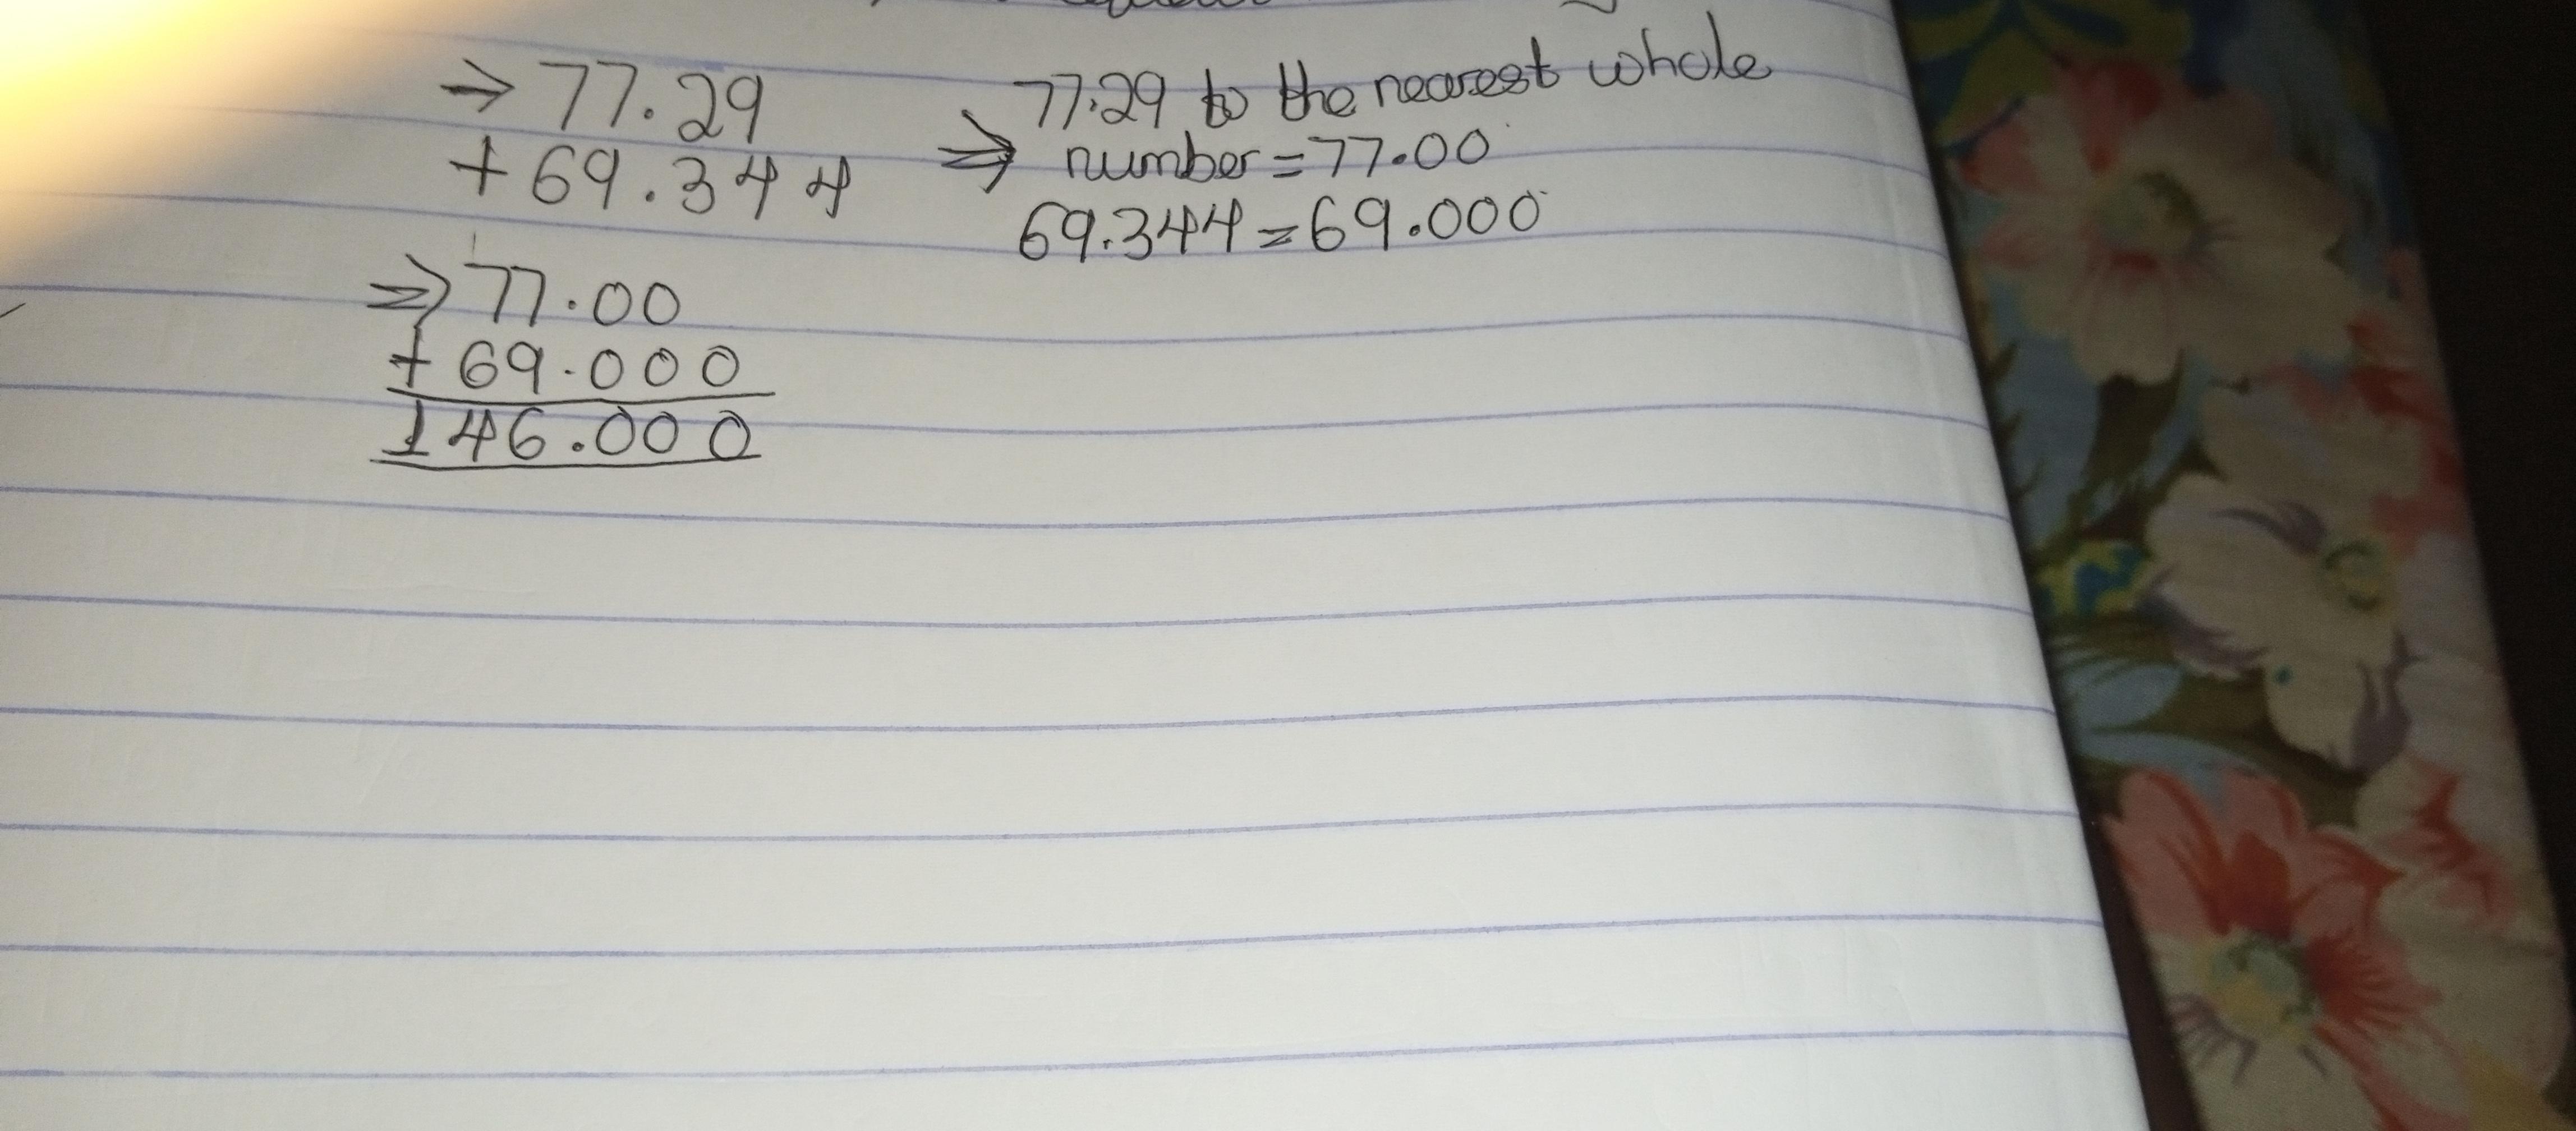 ⇒ 77.29
+ 69.344
77.29 to the nearest whole
⇒ number = 77.00
69.344 = 69.000
1
⇒ 77.00
+ 69.000
146.000